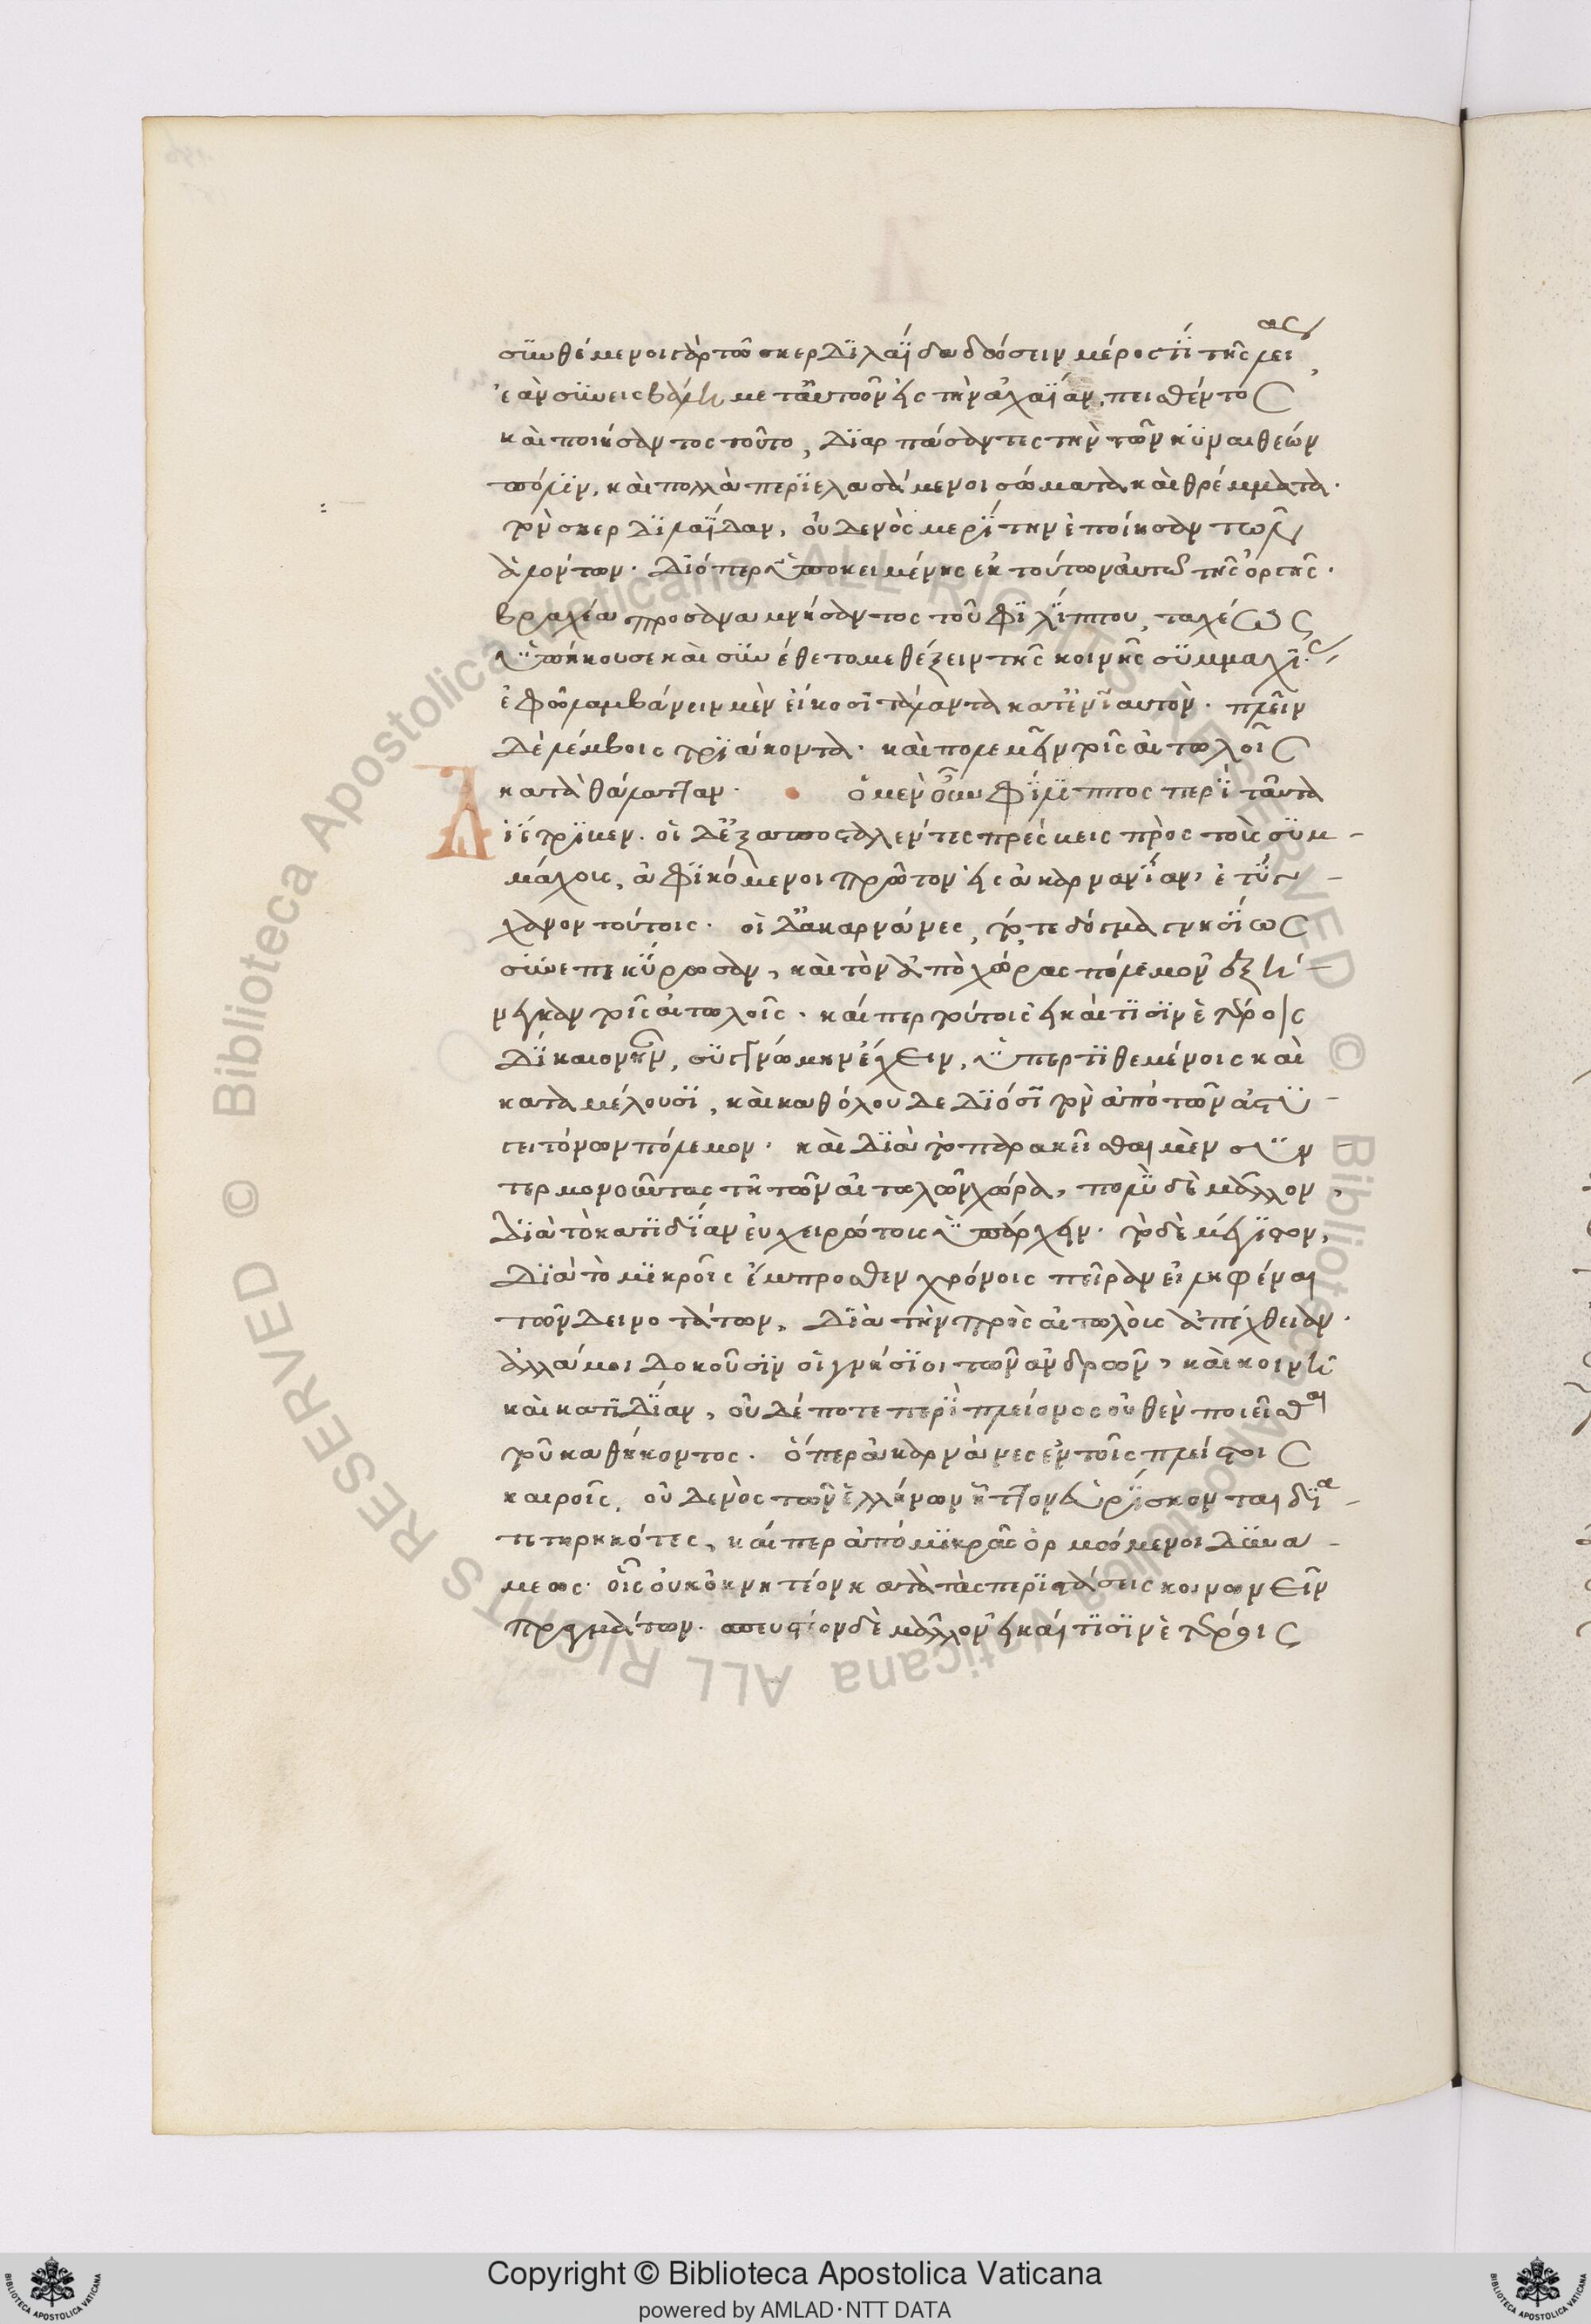 συνθέμενοι γὰρ τῶ σκερδιλαΐδα δώσειν μέρος τι τῆς λείας
ἐὰν συνεισβάλη μετ' αὐτῶν εἰς τὴν ἀχαΐαν, πεισθέντος
καὶ ποιήσαντος τοῦτο, διαρπάσαντες τὴν τῶν κυναιθέων
πόλιν, καὶ πολλὰ περιελασάμενοι σώματα καὶ θρέμματα.
τὸν σκερδιλαΐδαν, οὐδενὸς μερίτην ἐποίησαν τῶν
ἁλόντων. διόπερ ὑποκειμένης ἐκ τούτων αὐτῶ τῆς ὀργῆς.
βραχέα προσαναμνήσαντος τοῦ φιλίππου, ταχέως
ὑπήκουσε καὶ συνέθετο μεθέξειν τῆς κοινῆς συμμαχίας
ἐφ' ὧ λαμβάνειν μὲν εἴκοσι τάλαντα κατ' ἐνιαυτὸν. πλεῖν
δὲ λέμβοις τριάκοντα. καὶ πολεμεῖν τοῖς αἰτωλοῖς
κατὰ θάλατταν. ὁ μὲν οὖν φίλιππος περὶ ταῦτα
Διέτριβεν. οἱ δ' ἐξαποσταλέντες πρέσβεις πρὸς τοὺς συμ-
μάχους, ἀφικόμενοι πρῶτον εἰς ἀκαρνανίαν, ἐτύγ-
χανον τούτοις. οἱ δ' ἀκαρνάνες, τό, τε δόγμα γνησίως
συνεπεκύρωσαν, καὶ τὸν ἀπὸ χώρας πόλεμον ἐξή-
νεγκαν τοῖς αἰτωλοῖς. καίπερ τούτοις εἰ καί τισιν ἑτέροις
δίκαιον ἦν, συγγνώμην ἔχειν, ὑπερτιθεμένοις καὶ
καταμέλουσι, καὶ καθόλου δεδιόσι τὸν ἀπὸ τῶν ἀστυ-
γειτόνων πόλεμον. καὶ διὰ τὸ παρακεῖσθαι μὲν συν-
τερμονοῦντας τῆ τῶν αἰτωλῶν χώρα, πολὺ δὲ μᾶλλον,
διὰ τὸ κατιδίαν εὐχειρώτους ὑπάρχειν. τὸ δὲ μέγιστον,
διὰ τὸ μικροῖς ἔμπροσθεν χρόνοις πεῖραν εἰληφέναι
τῶν δεινοτάτων, διὰ τὴν πρὸς αἰτωλοὺς ἀπέχθειαν.
ἀλλά μοι δοκοῦσιν οἱ γνήσιοι τῶν ἀνδρῶν, καὶ κοινῆ
καὶ κατιδίαν, οὐδέποτε περὶ πλείονος οὐθὲν ποιεῖσθαι
τοῦ καθήκοντος. ὅπερ ἀκαρνάνες ἐν τοῖς πλείστοις
καιροῖς, οὐδενὸς τῶν ἑλλήνων ἧττον εὑρίσκονται δια-
τετηρηκότες, καίπερ ἀπὸ μικρᾶς ὁρμώμενοι δυνά-
μεως. οἷς οὐκ ὀκνητέον κατὰ τὰς περιστάσεις κοινωνεῖν
πραγμάτων. σπευστέον δὲ μᾶλλον εἰ καί τισιν ἑτέροις